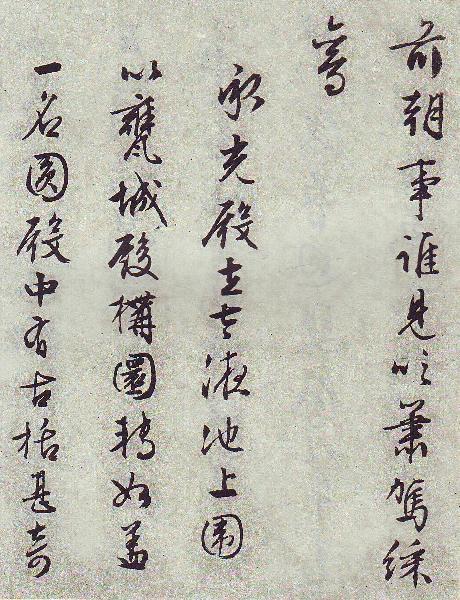 前朝事誰見吹簫駕綵
鸞
承光殿在太液池上圍
以甕城殿構圜轉如蓋
一名圓殿中有古栝甚奇